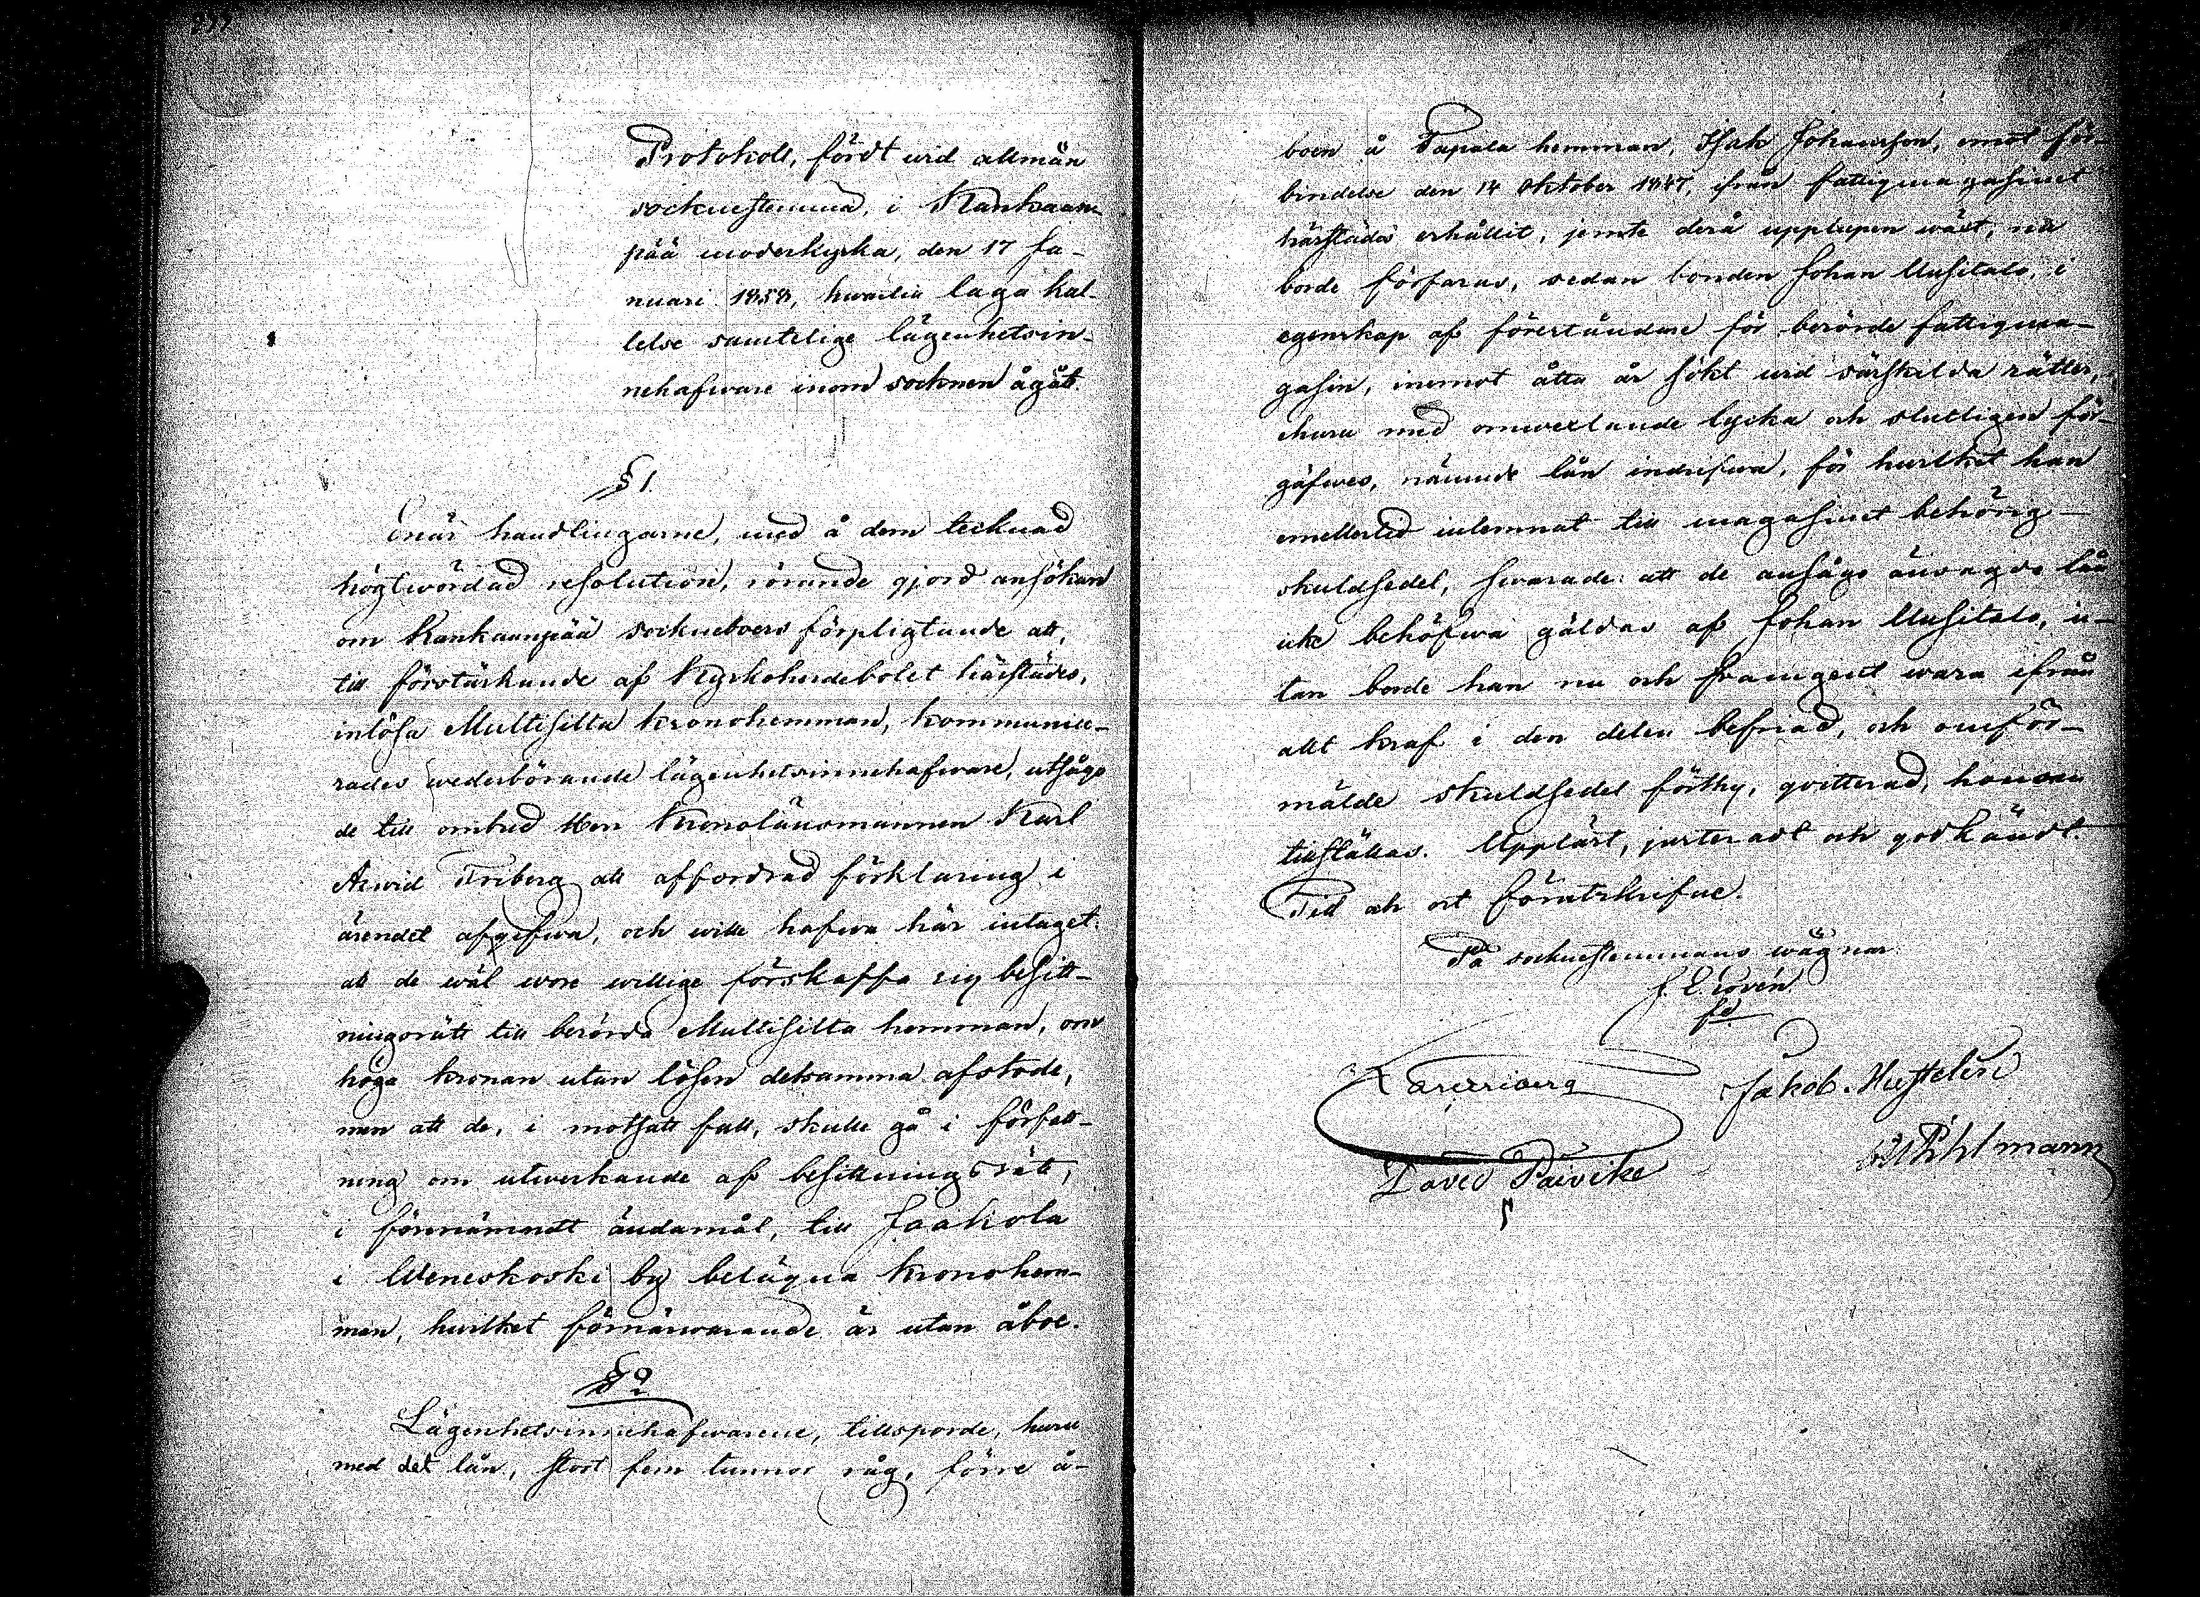 Protokoll, fördt wid allmän
socknestemma, i Kankaan-
pää moderkyrka, den 17 Ja-
nuari 1858, hwartill laga kal-
lelse samtelige lägenhetsin-
nehafware inom socknen ågått.
§ 1.
Enär handlingarne, med å dem tecknad
högtwördad resolution, rörande gjord ansökan
om Kankaanpää sockneboers förpligtande att,
till förstärkande af Kyrkoherdebolet härstädes,
inlösa Multisilta kronohemman, kommunice-
rades wederbörande lägenhetsinnehafware, utsågo
de till ombud Herr Kronolänsmannen Karl
Arwid Friberg att affordrad förklaring i
ärendet afgifwa, och wille hafwa här intaget:
att de wäl wore willige förskaffa sig besitt-
ningsrätt till berörda Multisilta hemman, om
höga kronan utan lösen detsamma afstode,
men att de, i motsatt fall, skulle gå i författ-
ning om utwerkande af besittningsrätt,
i förenämndt ändamål, till Jaakola
i Weneskoski by belägna kronohem-
man, hwilket förnärwarande är utan åboe.
§ 2
Lägenhetsinnehafwarene, tillsporde, huru
med det lån, stort fem tunnor råg, förre å-
boen å Papala hemman, Isak Johansson, emot för-
bindelse den 14 Oktober 1847, ifrån fattigmagasinet
härstädes erhållit, jemte derå upplupen wäxt, nu
borde förfaras, sedan bonden Johan Uusitalo, i
egenskap af föreståndare för berörde fattigma-
gasin, inemot åtta år sökt wid särskilda rätter,
ehuru med omwexlande lycka och slutligen för-
gäfwes, nämnde lån indrifwa, för hwilket han
emellertid inlemnat till magasinet behörig
skuldsedel, swarade: att de ansågo änsagde lån
icke behöfwa gäldas af Johan Uusitalo, u-
tan borde han nu och framgent wara ifrån
allt kraf i den delen befriad, och omför-
mälde skuldsedel förthy, qvitterad, honom
tillställas. Uppläst, justeradt och godkändt.
Tid och ort förutskrifne.
På socknestemmans wägnar
J. E. Lovén
Jakob Hestelin
Pihlmann
David Päivike